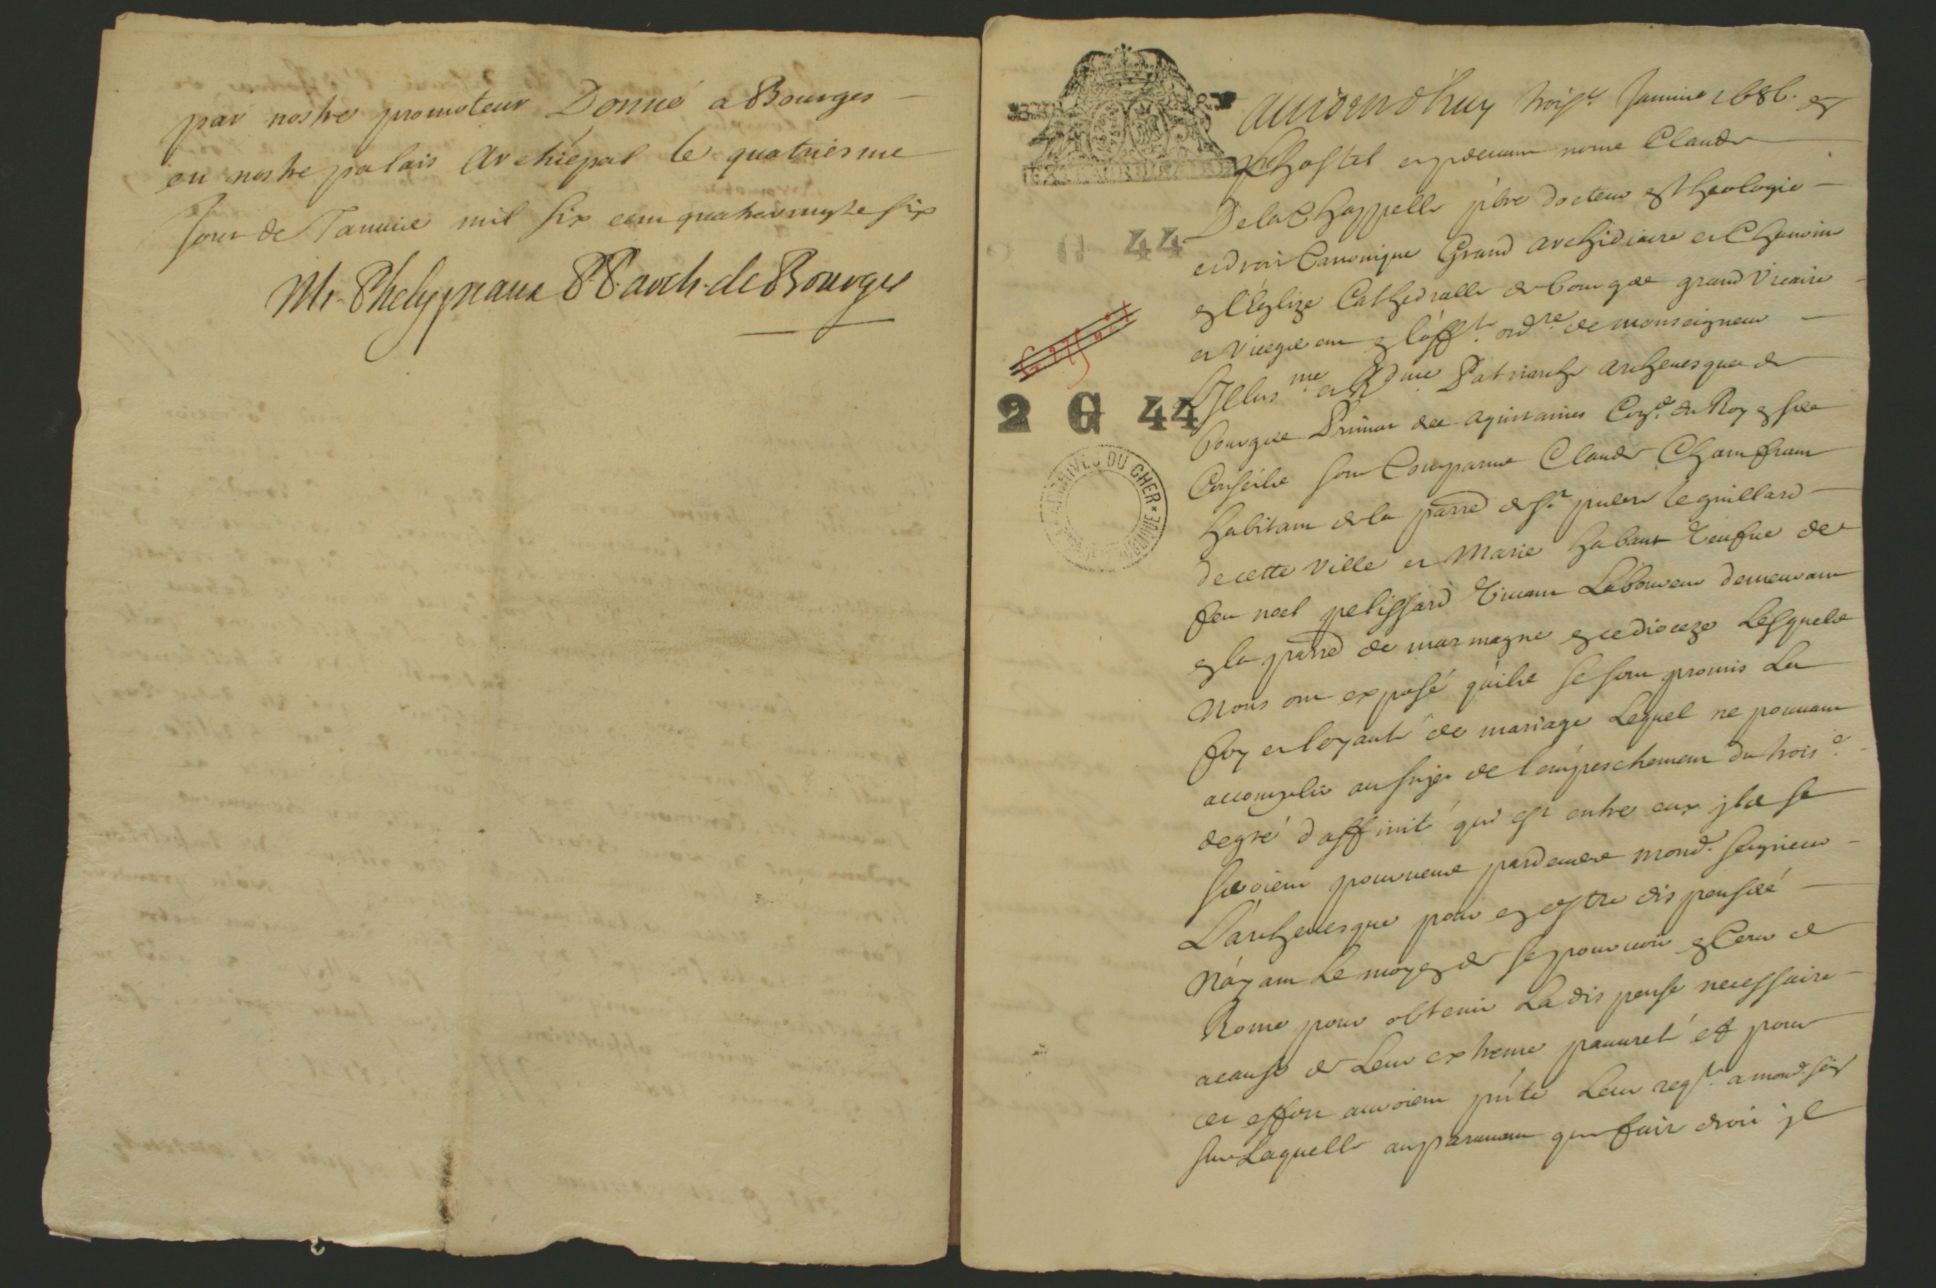 par nostre promoteur Donné a Bourges
en nostre palais Archiepal le quatriesme
Jour de Januie mil six cem quatrevingt six
Mi. Phelypeaux P. P. arch. de Bourges
Aujourdhuy trois.e Januier 1686. en
lhostel et pdeuant nous Claude
Dela Chappelle pbre docteur en theologie
et droit Canonique Grand archidiacre et Chanoine
en léglize Cathedralle de bourges grand Vicaire
et Vicegerent en lóff.té ord.re de monseigneur
Illus.me et R.dme Patriarche archeuesque de
bourges Primat des aquitaines Con.er du Roy en ses
Conseils sont Comparus Claude Chamfrant
habitant de la parr.e de St. pierre le guillard
de cette ville et Marie habant veufue de
feu noel pelissard viuant Laboureur demeurant
en la parr.e de marmagne en ce dioceze Lesquels
Nous ont exposé quils se sont promis La
foy et loyauté de mariage Lequel ne pouuant
accomplir au sujet de lempeschement du trois.e
degré daffinité qui est entre eux jls se
seroient pourueus pardeuers mond. seigneur
Larcheuesque pour en estre dispensés
Náyant Le moyen de se pouruoir en Cour de
Rome pour obtenir La dispense necessaire
acause de Leur extreme pauureté et pour
cet effet auroient pnte Leur reqte. a mond. seigr
sur Laquelle auparauant que faire droit jl
EXTRAORDINAIRE
G 44
2 G 44
ARCHIVES DU CHER